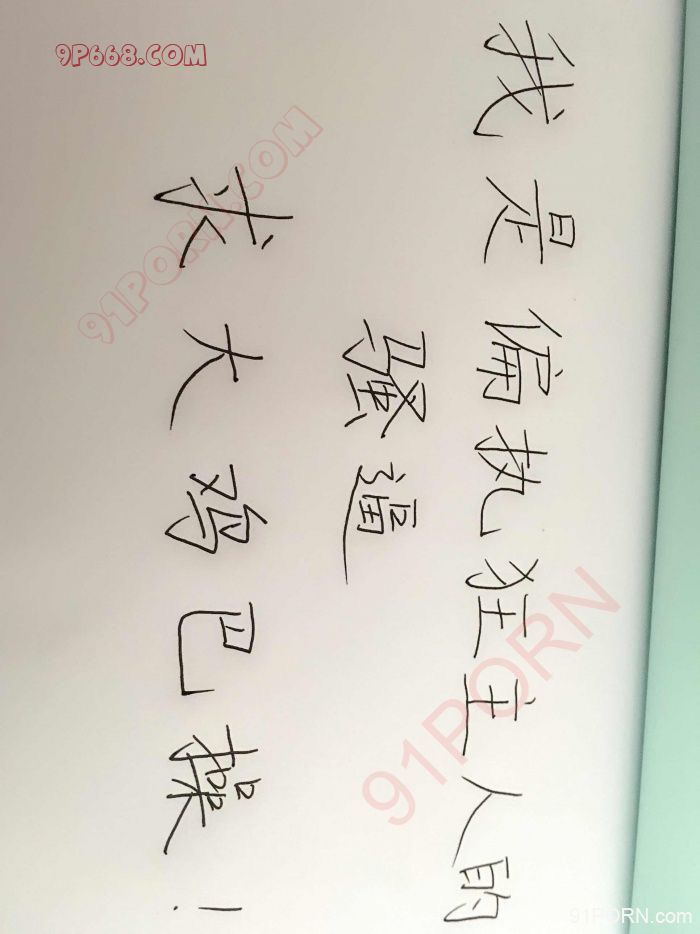 我是偏执狂主人的
骚逼
求大鸡巴操！
9P668.COM
91PORN.COM
91PORN
91PORN.com